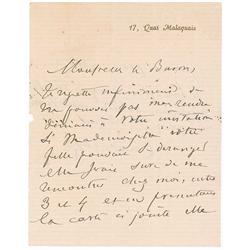 17, Quai Malaquais
Monsieur le Baron,
Je regrette infiniment de
ne pouvoir pas me rendre
demain à votre invitation
Si Mademoiselle votre
fille pouvait se déranger
elle serait sure de me
rencontrer chez moi, entre
3 et 4 et en présentant
la carte ci jointe elle